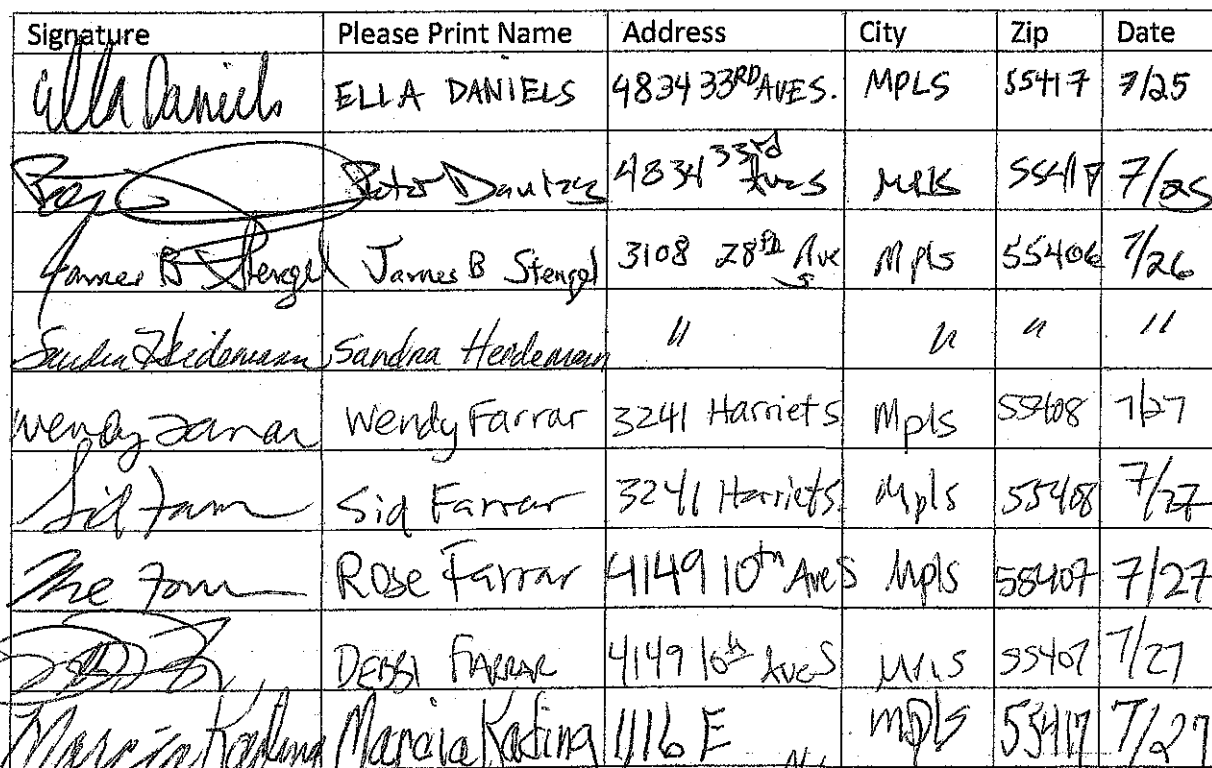 Signature Please Print Name Address City Zip Date
Ella Daniels ELLA DANIELS 4834 33RD AVE S. MPLS 55417 7/25
4834 33rd Ave S Mpls 55417 7/25
James B Stengel James B Stengel 3108 28th Ave S Mpls 55406 7/26
Sandra Heidemann Sandra Heidemann " " " "
Wendy Farrar Wendy Farrar 3241 Harriet S Mpls 55408 7/27
Sid Farrar Sid Farrar 3241 Harriet S. Mpls 55408 7/27
Rose Farrar 4149 10th Ave S Mpls 55407 7/27
DEBBI FARRAR 4149 10th Ave S MPLS 55407 7/27
Marcia 1116 E Mpls 55417 7/27